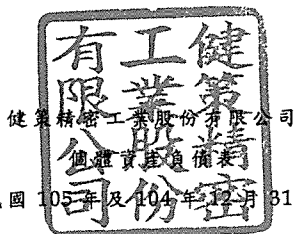 健策精密
工業股份
有限公司
健策精密工業股份有限公司
個體資產負債表
國 105 年及 104 年 12 月 31